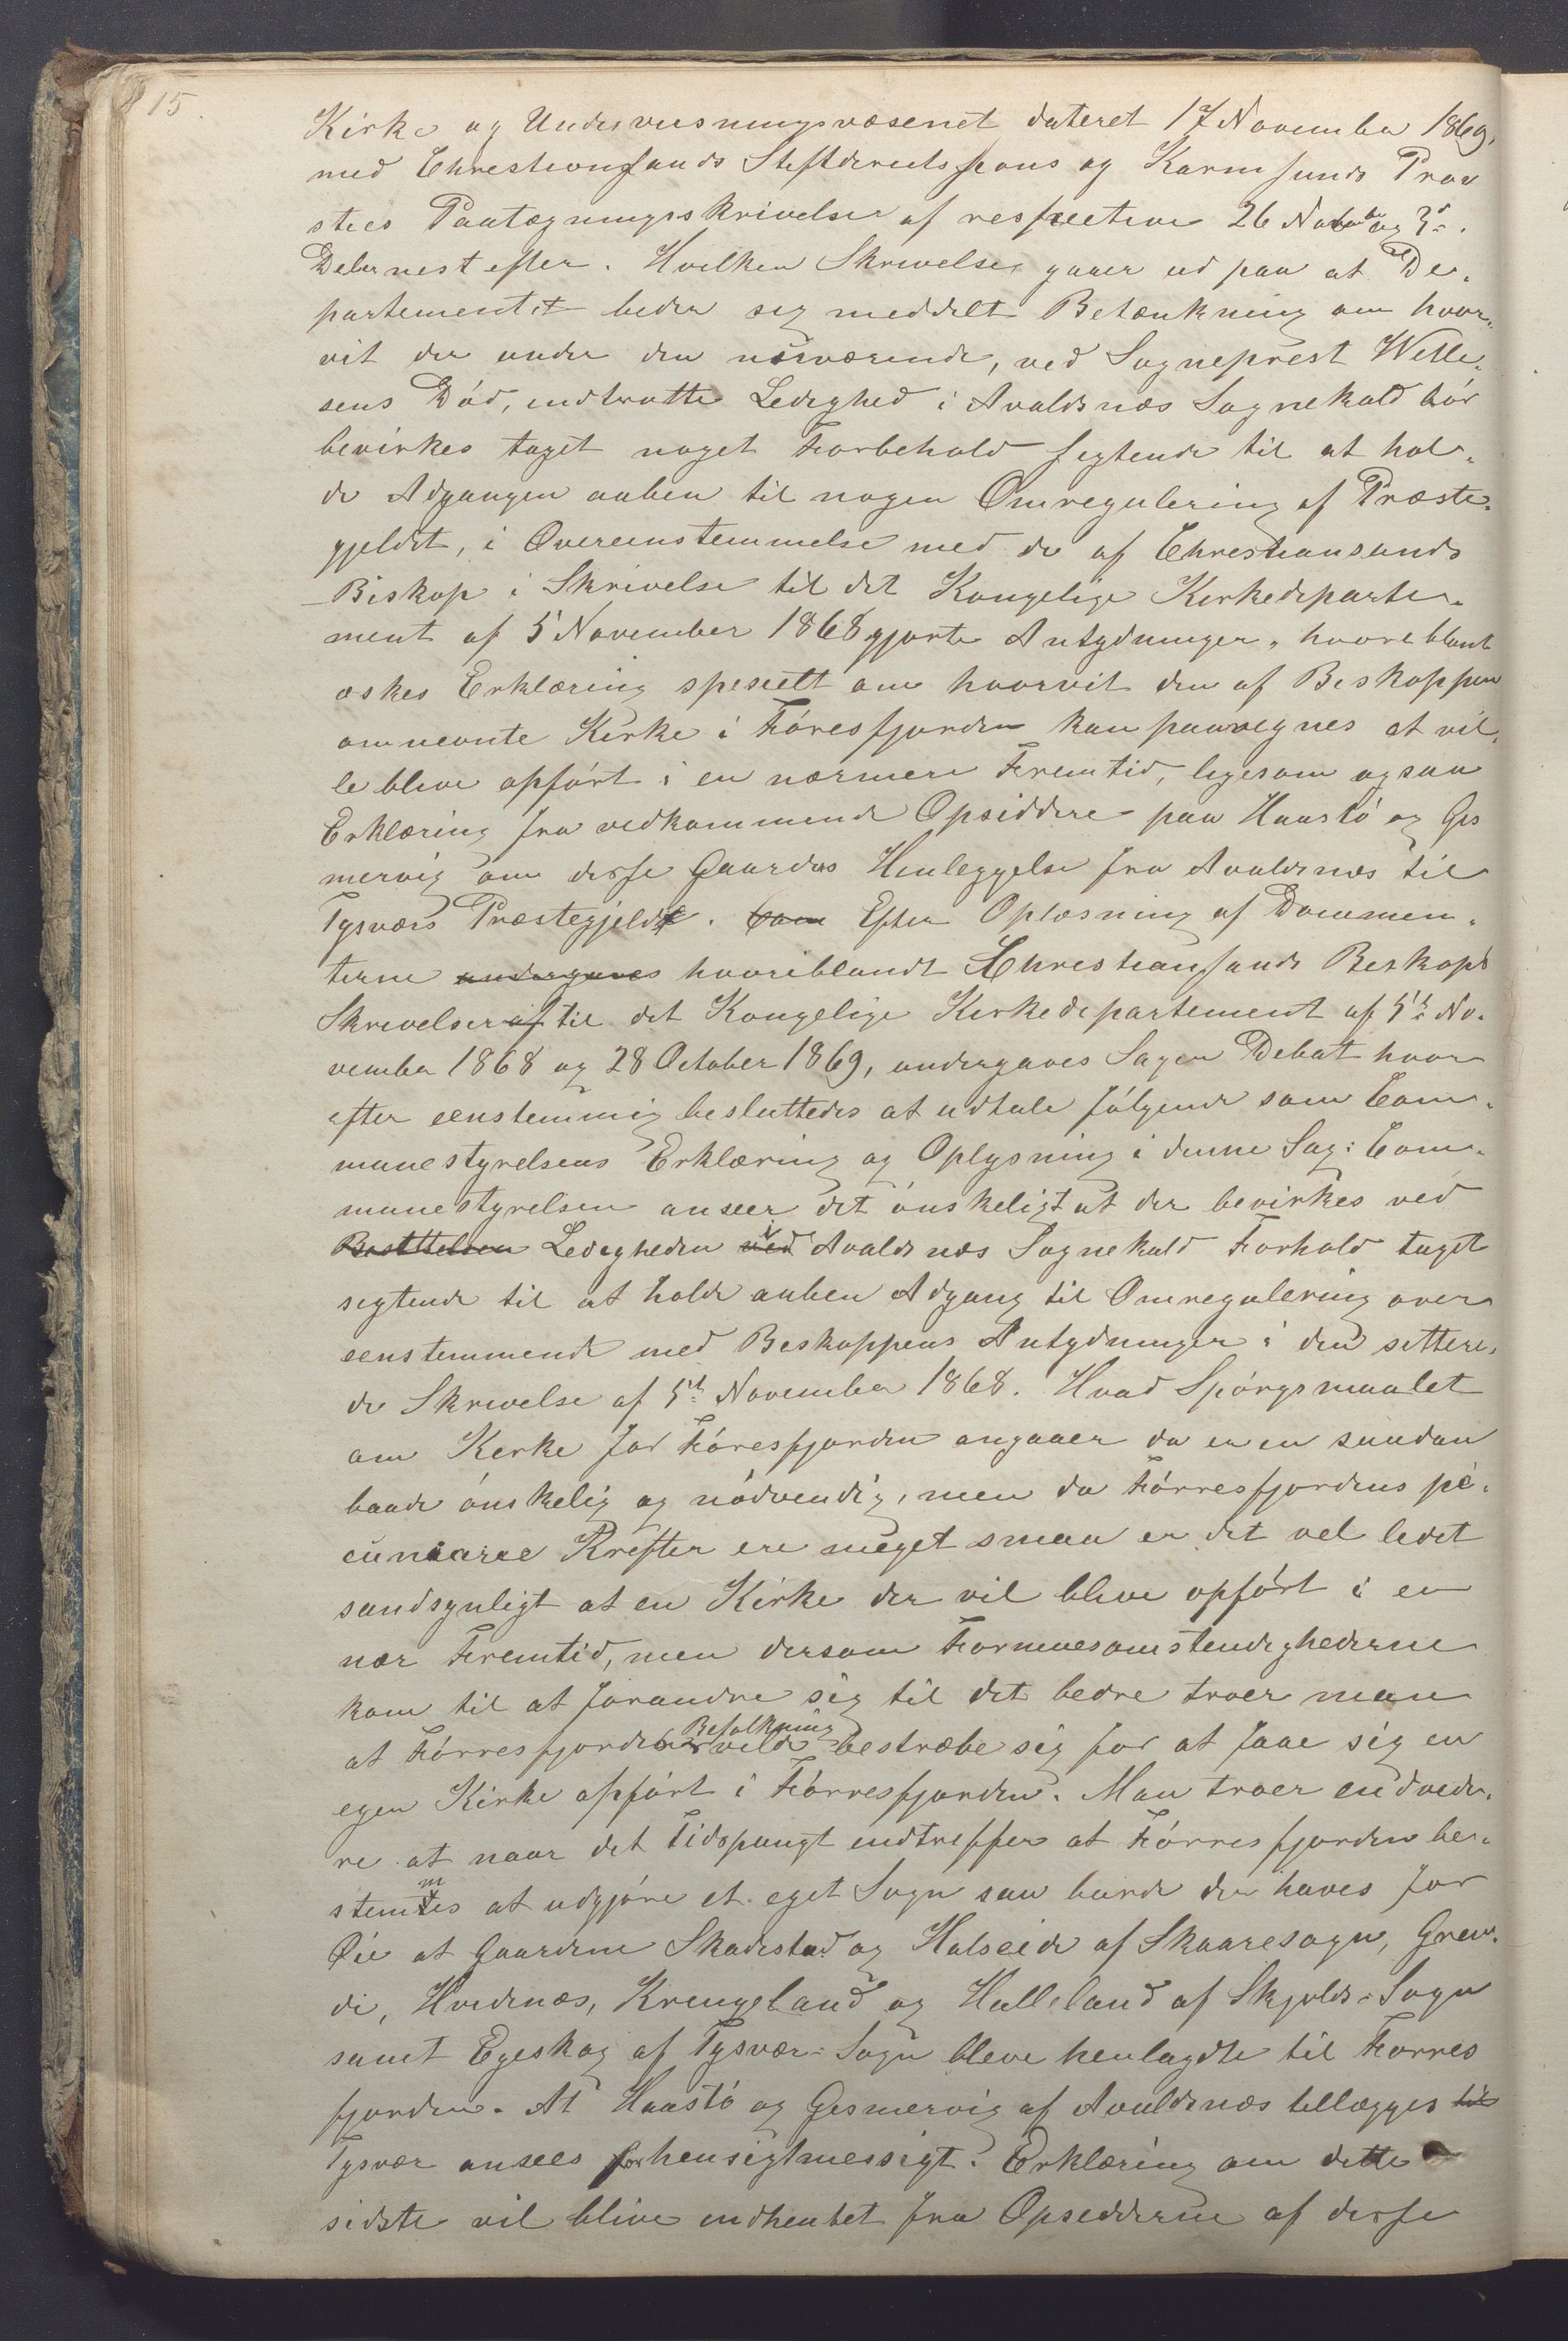 15.
Kirke og Undervisningsvæsenet dateret 17 November 1869,
med Christiansands Stiftdirectssions og Karmsunds Prov
sties Paategningsskrivelse af respective 26 Novbr og 3d.
Debr nest efter. Hvilken Skrivelse gaaer ud paa at De-
partementet beder sig meddelt Betænkning om hvor-
vit der under den nærværende, ved Sogneprest Wille-
sens Död, indtrufte Ledighed i Avaldsnæs Sognekald bör
bevirkes taget noget Forbehold sigtende til at hol-
de Adgangen aaben til nogen Omregulering af Præste-
gjeldet, i Overeenstemmelse med de af Christiansands
Biskop i Skrivelse til det Kongelige Kirkedeparte-
ment af 5 November 1868 gjorte Antydninger, hvoriblant
æskes Erklæring spesielt om hvorvit den af Biskoppen
omnevnte Kirke i Föresfjorden kan paaregnes at vil-
le blive opfört i en nærmere Fremtid, ligesom ogsaa
Erklæring fra vedkommende Opsiddere paa Haastö og Gis
mervig om disse Gaardes Henleggelse fra Avaldsnæs til
Tysværs Præstegjeld. Som Efter Oplæsning af Documen-
terne undergaves hvoriblandt Christiansands Biskops
Skrivelser af til det Kongelige Kirkedepartement af 5te No-
vember 1868 og 28 October 1869, undergaves Sagen Debat hvor
efter eenstemmig besluttedes at udtale fölgende som Com-
munestyrelsens Erklæring og Oplysning i denne Sag: Com-
munestyrelsen anseer det önskeligt at der bevirkes ved
Besettelsen Ledigheden ved i Avaldsnæs Sognekald Forhold taget
sigtende til at holde aaben Adgang til Omregulering over
eenstemmende med Biskoppens Antydninger i den sittere-
de Skrivelse af 5te November 1868. Hvad Spörgsmaalet
om Kirke for Föresfjorden angaaer da er en saadan
baade önskelig og nödvendig, men da Förresfjordens pe-
cuniaree Krefter ere meget smaa er det vel lidet
sandsynligt at en Kirke der vil blive opfört i en
nær Fremtid, men dersom Formuesomstendighederne
kom til at forandre sig til det bedre troer man
at Förresfjordens Befolkning vilde bestræbe sig for at faae sig en
egen Kirke opfört i Förresfjorden. Man troer endvide-
re at naar det Tidspungt indtreffer at Förresfjorden be-
stemmes at udgjöre et eget Sogn saa burde der haves for
Öie at Gaardene Skadestad og Halseide af Skaaresogn, Grin-
di, Hvidenæs, Krengeland og Helleland af Skjolds-Sogn
samt Egeskog af Tysvær-Sogn bleve henlagdte til Forres
fjorden. At Haastö og Gismervig af Avaldsnæs tillægges til
Tysvær ansees for hensigtmessigt. Erklæring om dette
sidste vil blive indhentet fra Opsidderne af disse